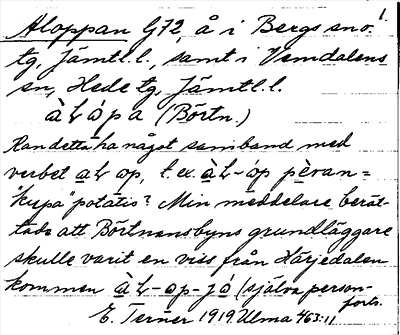 1.
Aloppan G72, å i Bergs sn o.
tg, Jämtl. l., samt i Vemdalens
sn, Hede tg, Jämtl. l.
àL ó p a (Börtn.)
Kan detta ha något samband med
verbet aL op, t. ex. àL-óp pèran =
"kupa" potatis? Min meddelare berät-
tade att Börtnansbyns grundläggare
skulle varit en viss från Härjedalen
kommen àL-op-jó (själva person-
fortn.
E. Terner 1919. Ulma 463:11